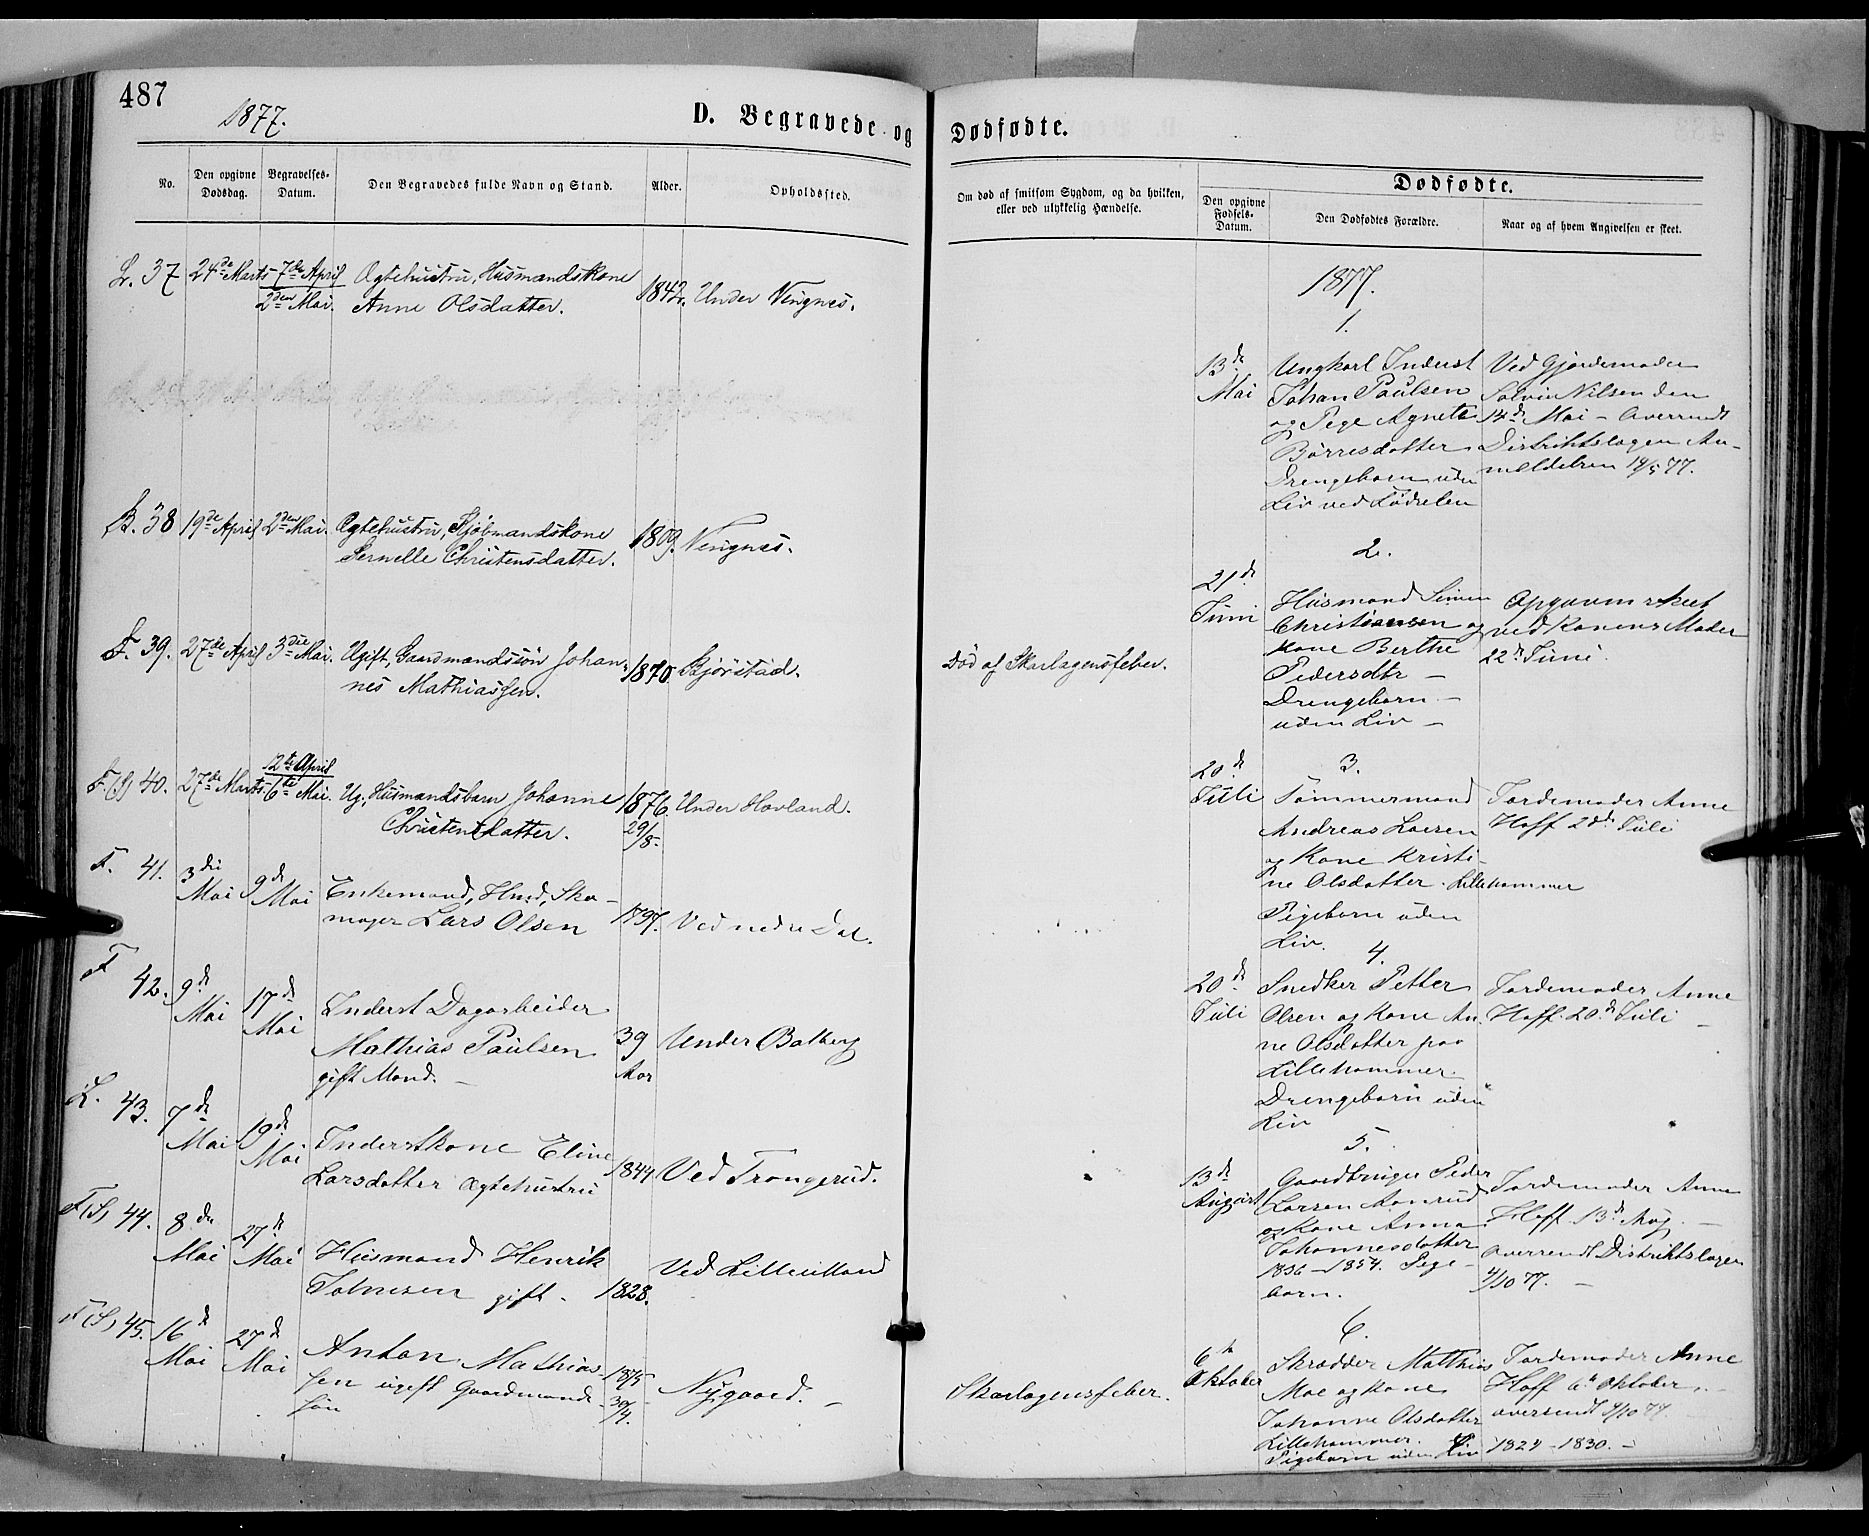 487
1877.
D. Begravede og Dødfødte.
No.
Den opgivne Dødsdag.
Begravelses-Datum.
Den Begravedes fulde Navn og Stand.
Alder.
Opholdssted.
Om død af smitsom Sygdom, og da hvilken,
eller ved ulykkelig Hændelse.
Dødfødte.
Den opgivne Fødsels-Datum.
Den Dødfødtes Forældre.
Naar og af hvem Angivelsen er skeet.
L. 37 24de Marts 7de April Ægtehustru, Husmandskone 1842. Under Vingnes.
2den Mai. Anne Olsdatter.
B. 38 19de April 2den Mai. Ægtehustru, Kjøbmandskone 1809. Vingnes.
Pernelle Christensdatter.
F. 39. 27de April 3die Mai. Ugift, Gaardmandssøn Johan- 1870. Bjørstad. Død af Skarlagensfeber.
nes Mathiassen.
12te April
F.(S) 40. 27de Marts 6te Mai. Ug. Husmandsbarn Johanne 1876 Under Hovland.
Christensdatter. 29/8.
F. 41. 3die Mai 9de Mai Enkemand, Husmd, Sko-
mager Lars Olsen 1797. Ved nedre Dal.
F 42. 9de Mai 17de Mai Inderst Dagarbeider
Mathias Paulsen 39 Under Balberg
gift Mand. – Aar
L. 43. 7de Mai 19de Mai Inderstkone Eline
Larsdatter Ægtehustru 1844 Ved Trongerud.
F(S) 44. 8de Mai 27de Mai Husmand Henrik Ved Lilleulland
gift. 1828.
F(S) 45. 16de Mai 27de Mai Anton Mathias- 1875
sen ugift Gaardmands- 30/4. Nygaard. – Skarlagensfeber.
søn
1877.
1.
13de Ungkarl Inderst Ved Gjordemoder
Mai Johan Paulsen Nilsen den
og Pige Agnete 14de Mai – Oversendt
Børresdatter Distriktslægen An-
Drengebarn uden meldelsen 19/5 77.
Liv ved Fødselen
2.
21de Husmand Simen Opgaven skeet
Juni Christiansen og ved Konens Moder
Kone Berthe 22de Juni.
Pedersdtr –
Drengebarn –
uden Liv –
3.
20de
Juli Tømmermand Jordemoder Anne
Andreas Larsen Hoff 2de Juli
og Kone Kristi-
ne Olsdatter. Lillehammer
Pigebarn uden
Liv.
4.
20de Snedker Petter Jordemoder Anne
Juli Olsen og Kone An- Hoff. 20de Juli –
ne Olsdatter paa
Lillehammer.
Drengebarn uden
Liv
5.
13de Gaardbruger Peder Jordemoder Anne
August Larsen Aanrud Hoff 13de Aug. –
og Kone Anna oversendt Distriktslægen
Johannesdatter 4/10 77. –
1836 – 1854. Pige-
barn.
6.
6te Skrædder Matthias Jordemoder Anne
Oktober Moe og Kone Hoff 6te Oktober
Johanne Olsdatter oversendt 9/10 77.
Lillehammer.
Pigebarn uden Liv 1829 – 1830. –